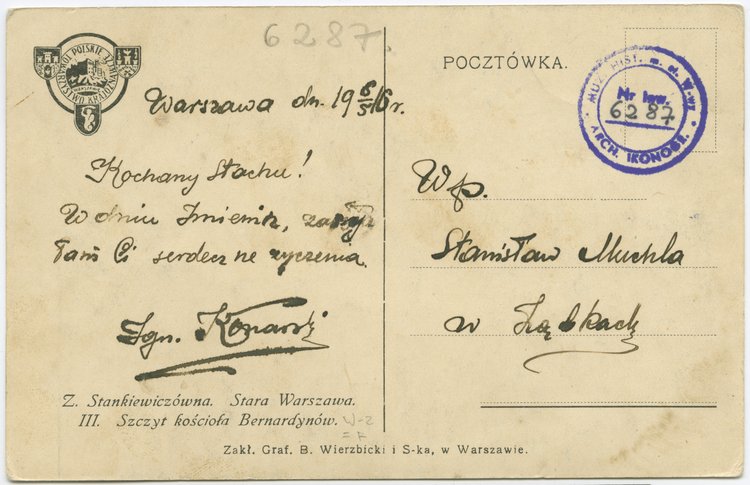 6287.
POLSKIE TOWARZYSTWO KRAJOZNAWCZE
WARSZAWA
POCZTÓWKA.
MUZ. HIST. m. st. W-wy
Nr inw.
6287
ARCH. IKONOGR.
Warszawa dn. 19 6/5 16 r.
Kochany Stachu!
W dniu Imienin, zasył
łam Ci serdeczne życzenia.
Ign. Konarski
Wp.
Stanisław Muchla
w Ząbkach
Z. Stankiewiczówna. Stara Warszawa.
III. Szczyt kościoła Bernardynów.
W-2
Zakł. Graf. B. Wierzbicki i S-ka, w Warszawie.